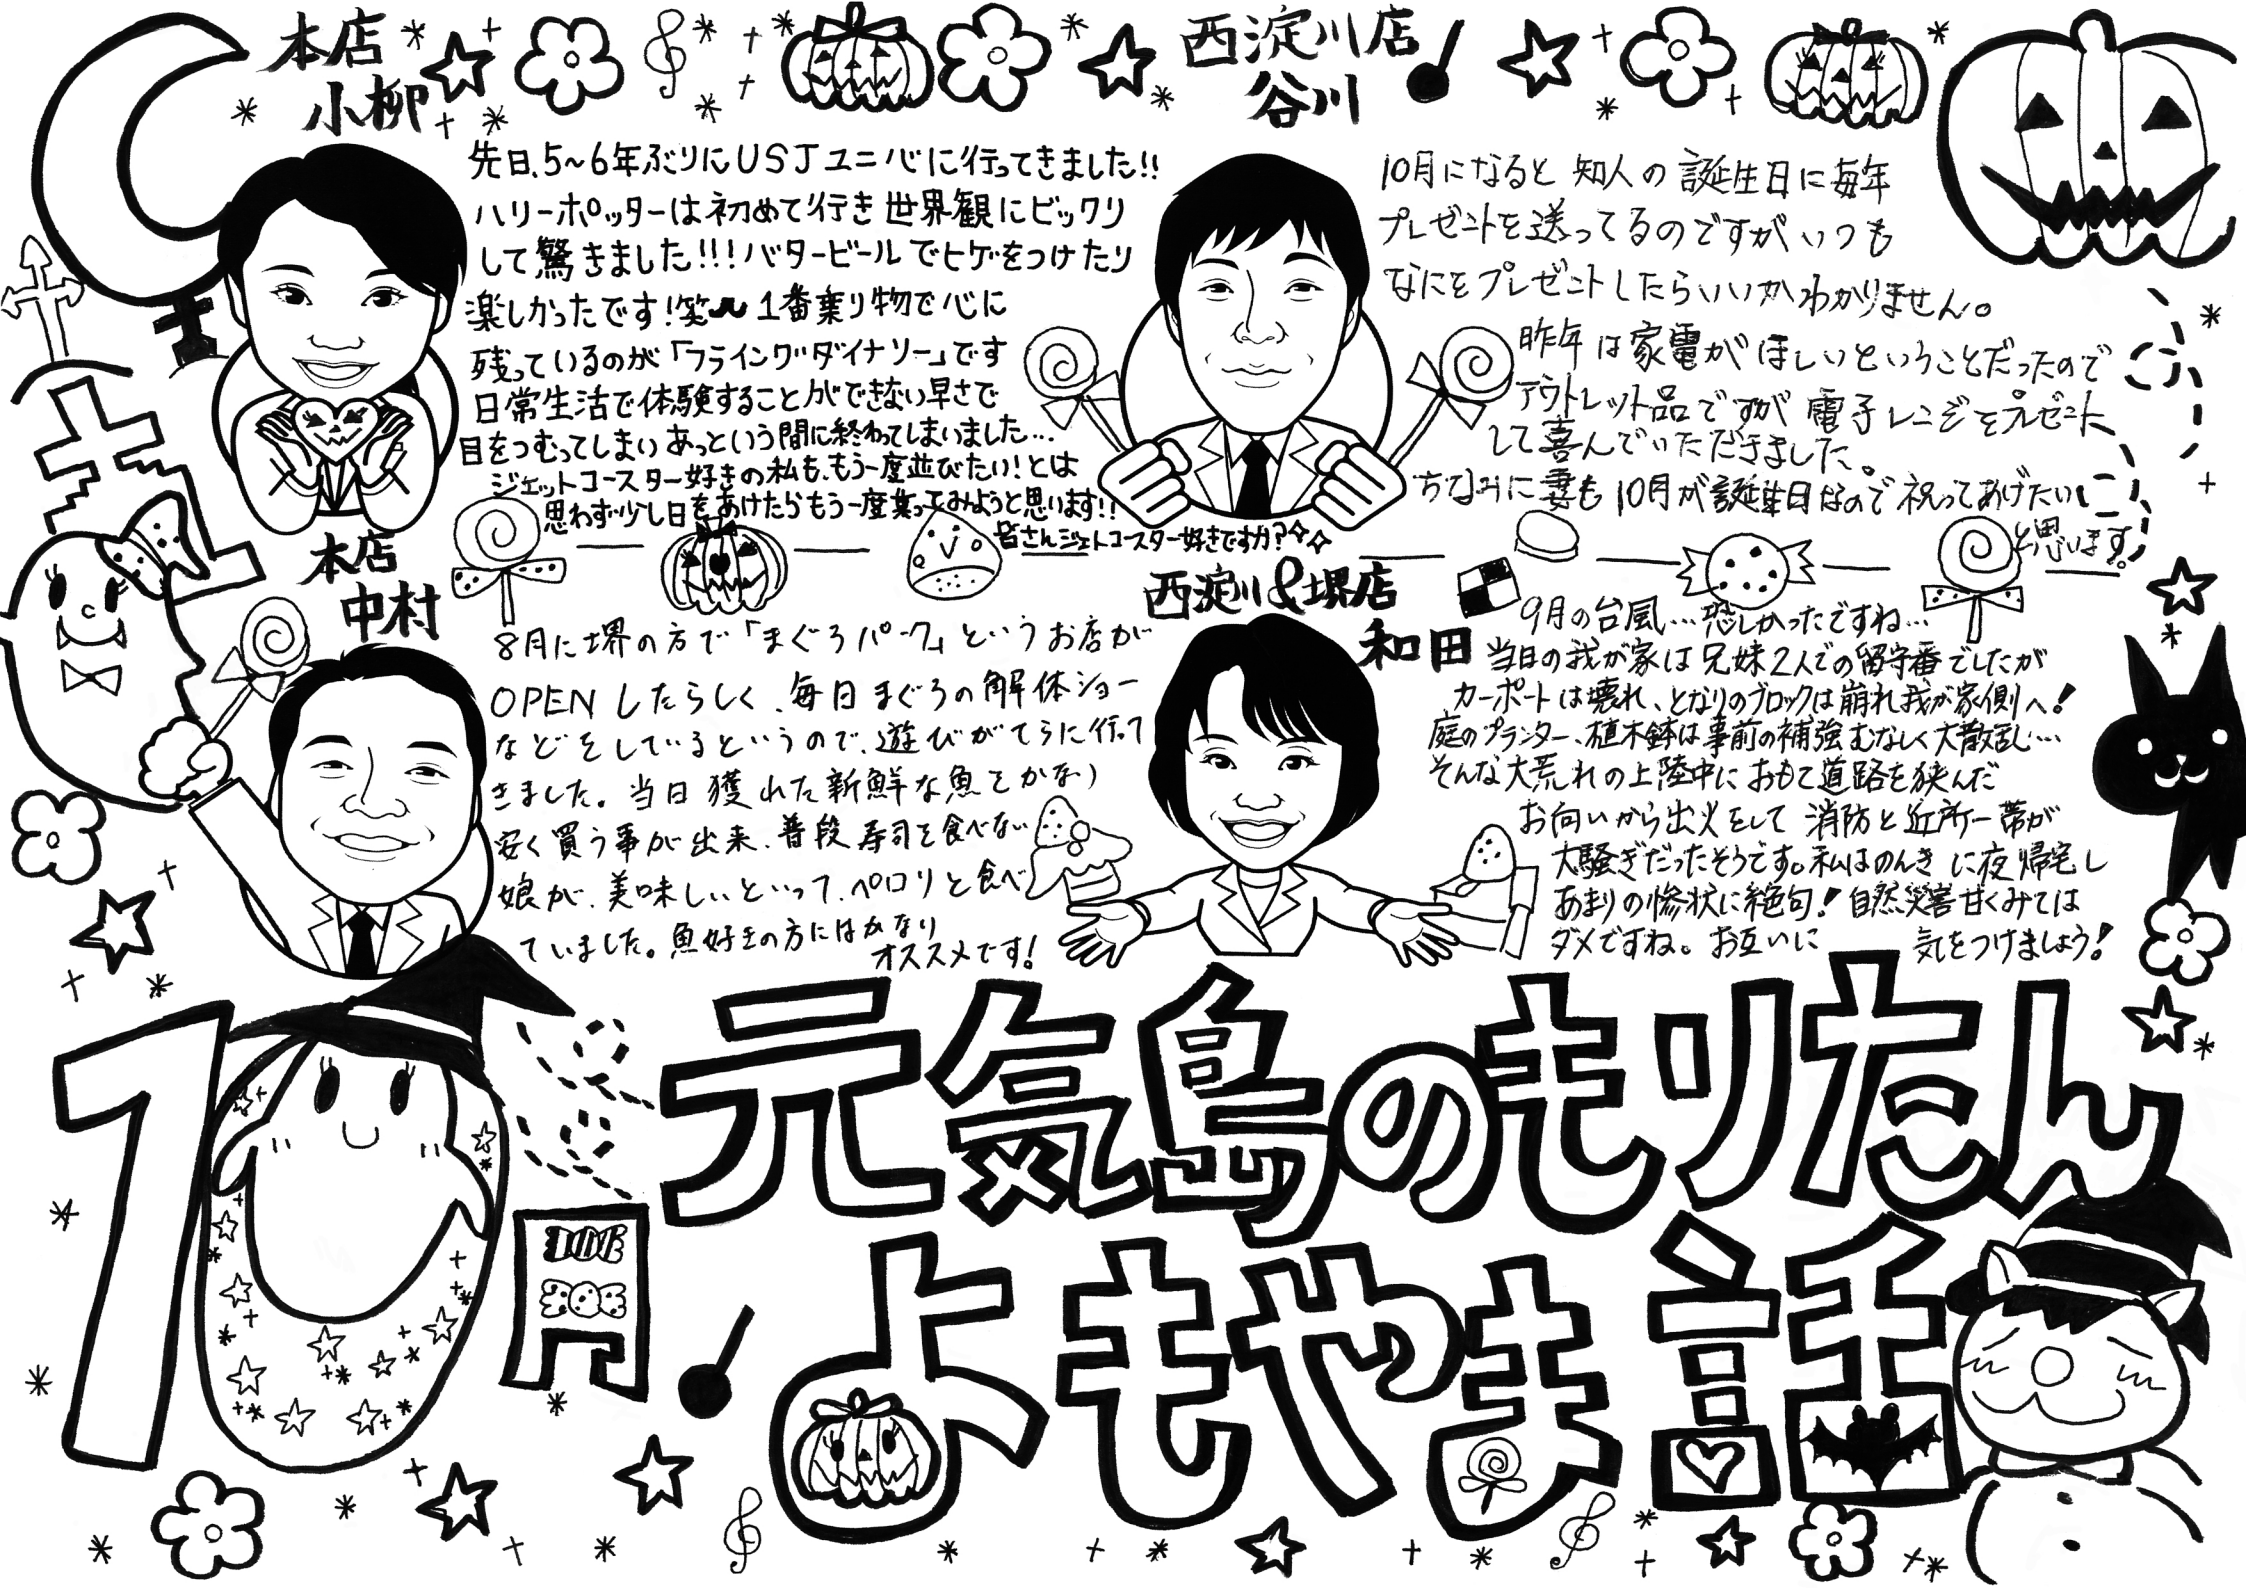 本店
小柳
先日、5〜6年ぶりにUSJユニバに行ってきました!!
ハリーポッターは初めて行き世界観にビックリ
して驚きました!!!バタービールでヒゲをつけたり
楽しかったです!笑 1番乗り物で心に
残っているのが「フライングダイナソー」です
日常生活で体験することができない早さで
目をつむってしまいあっという間に終わってしまいました…
ジェットコースター好きの私も、もう一度並びたい!とは
思わず少し日をあけたらもう一度乗ってみようと思います!!
皆さんジェトコースター好きですか?
西淀川店
谷川
10月になると知人の誕生日に毎年
プレゼントを送ってるのですがいつも
なにをプレゼントしたらいいかわかりません。
昨年は家電がほしいということだったので
アウトレット品ですが電子レンジをプレゼント
して喜んでいただきました。
ちなみに妻も10月が誕生日なので祝ってあげたい
と思います。
本店
中村
8月に堺の方で「まぐろパーク」というお店が
OPENしたらしく、毎日まぐろの解体ショー
などをしているというので、遊びがてらに行って
きました。当日獲れた新鮮な魚をかなり
安く買う事が出来、普段寿司を食べない
娘が、美味しいといって、ペロリと食べ
ていました。魚好きの方にはかなり
オススメです!
西淀川&堺店
和田
9月の台風…恐しかったですね…
当日の我が家は兄妹2人での留守番でしたが
カーポートは壊れ、となりのブロックは崩れ我が家側へ!
庭のプランター、植木鉢は事前の補強むなしく大散乱…
そんな大荒れの上陸中におもて道路を狭んだ
お向いから出火をして消防と近所一帯が
大騒ぎだったそうです。私はのんきに夜帰宅し
あまりの惨状に絶句!自然災害甘くみては
ダメですね。お互いに気をつけましょう!
10月
元気島のもりたん
よもやま話